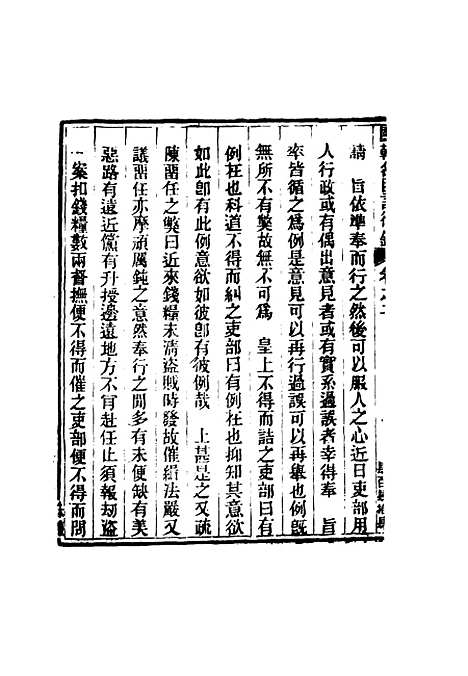 請　旨依準奉而行之然後可以服人之心近日吏部用
人行政或有偶出意見者或有實系過誤者幸得奉　旨
率皆循之為例是意見可以再行過誤可以再舉也例既
無所不有獘故無不可為　皇上不得而詰之吏部曰有
例枉也科道不得而糾之吏部曰有例枉也抑知其意欲
如此卽有此例意欲如彼卽有彼例哉　上甚是之又疏
陳畱任之獘曰近來錢糧未清盜賊時發故催纉法嚴又
議畱任亦摩頑厲鈍之意然奉行之間多有未便缺有美
惡路有遠近黨有升授邊遠地方不肯赴任止須報刼盜
一案扣錢糧數兩督撫便不得而催之吏部便不得而問